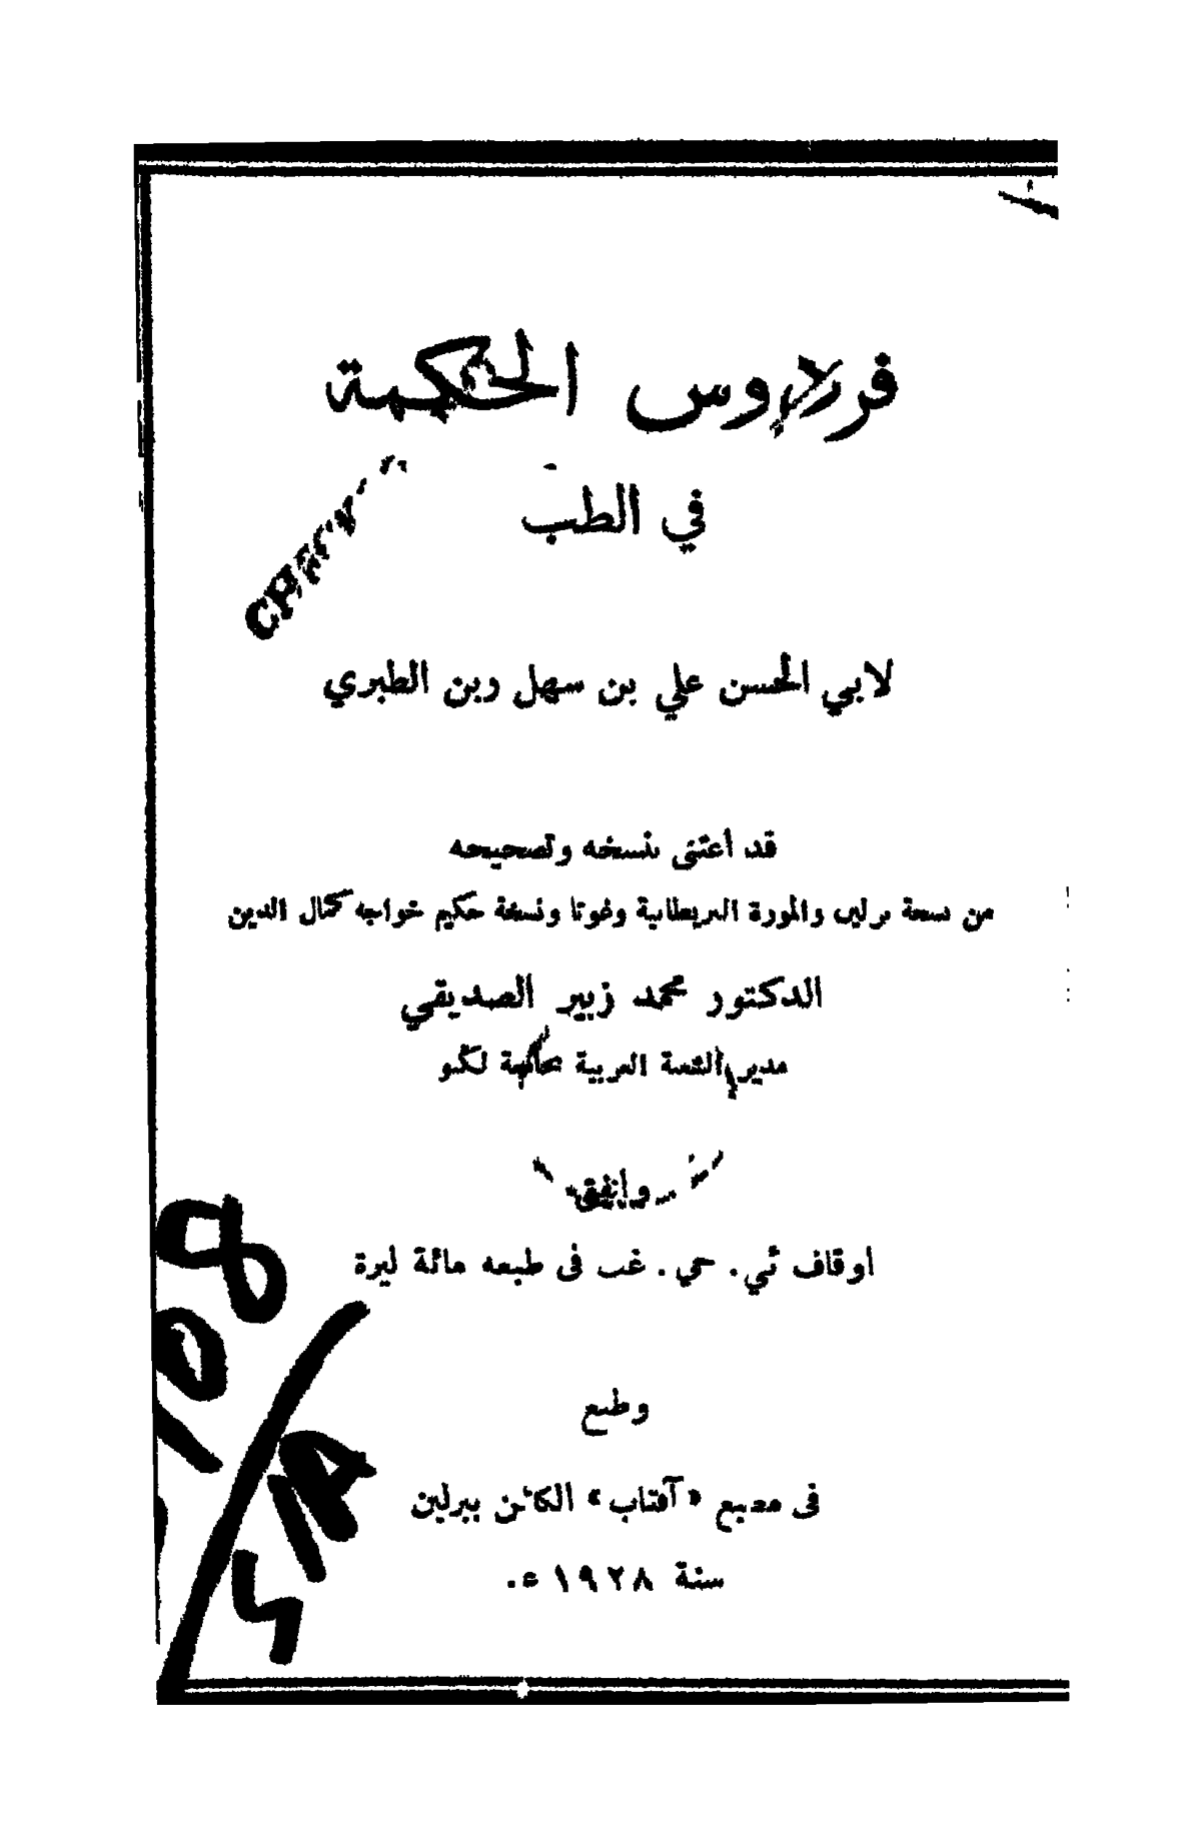 فردوس الحكمة
في الطب
لابي الحسن علي بن سهل ربن الطبري
قد اعتنى بنسخه وتصحيحه
من نسخة برلين والموزة البريطانية وغوتا ونسخة حكيم خواجه كمال الدين
الدكتور محمد زبير الصديقي
مدير الشعبة العربية بجامعة لكنو
وانفق
اوقاف ئي. جي. غب فى طبعه مائة ليرة
وطبع
فى مطبع «آفتاب» الكائن ببرلين
سنة ١٩٢٨ء.